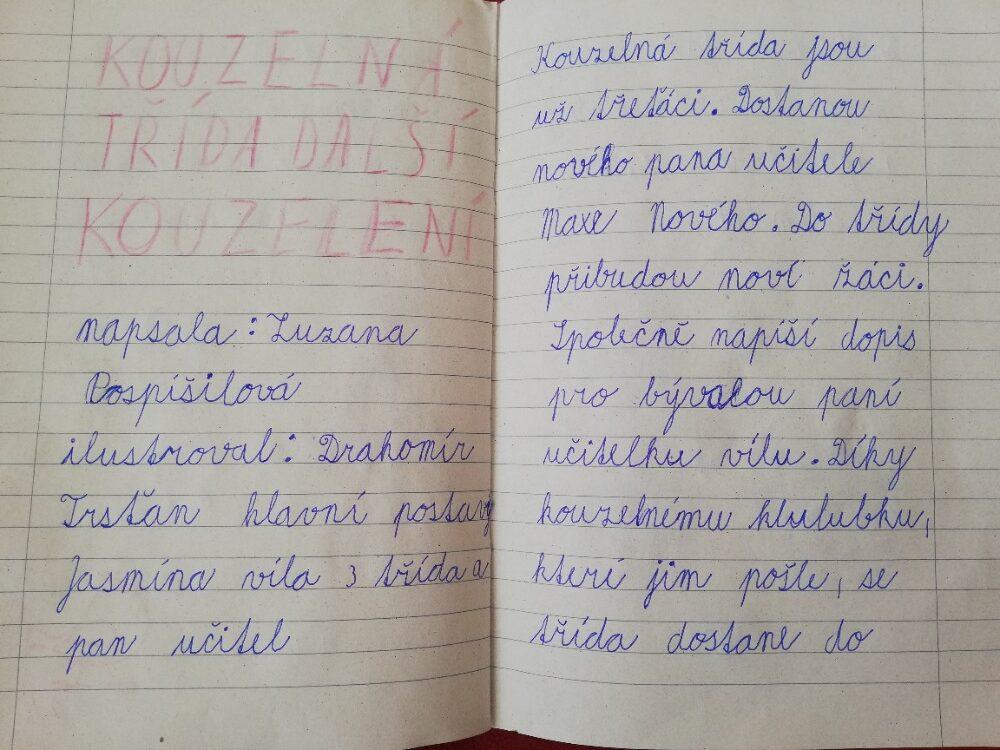 KOUZELNÁ
TŘÍDA DALŠÍ
KOUZELENÍ
napsala : Zuzana
Pospíšilová
ilustroval : Drahomír
Trsťan hlavní postavy
Jasmína víla 3 třída a
pan učitel
Kouzelná třída jsou
už třeťáci. Dostanou
nového pana učitele
Maxe Nového. Do třídy
přibudou noví žáci.
Společně napíší dopis
pro bývalou paní
učitelku vílu. Díky
kouzelnému klulubku,
kterí jim pošle, se
třída dostane do